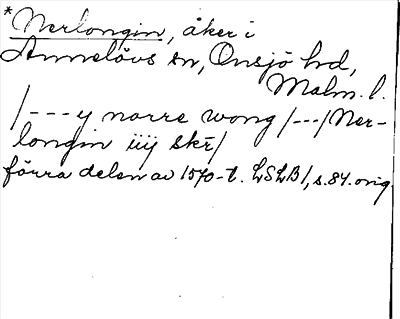 *Nerlongin, åker i
Annelövs sn, Onsjö hd,
Malm. l.
/--- y norre wong /---/ Ner-
longin iiij skr/
förra delen av 1570-t. LSLB1, s. 84. orig